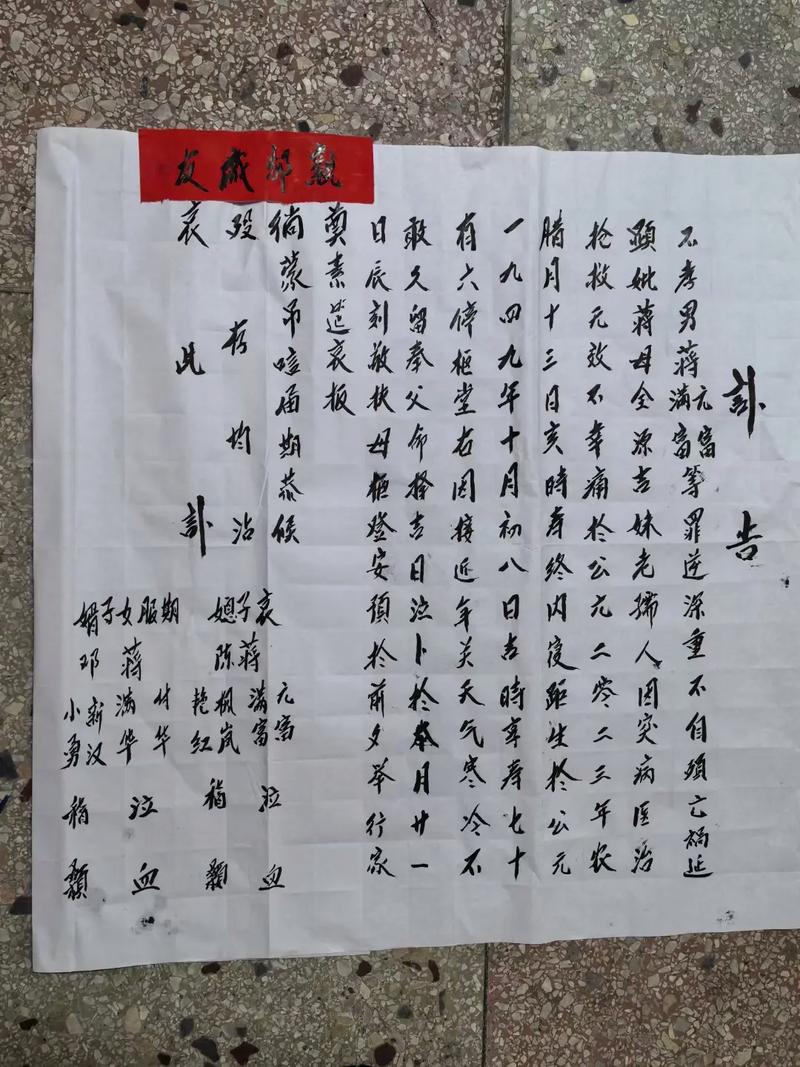 讣告
不孝男蒋元富满富等罪逆深重不自殒亡祸延
顕妣蒋母全源吉妹老孺人因突病医治
抢救无效不幸痛於公元二零二三年农
腊月十三日亥時寿终内寝距生於公元
一九四九年十月初八日吉時享寿七十
有六停柩堂右因接近年关天气寒冷不
敢久留奉父命择吉日泣卜於本月廿一
日辰刻敬扶母柩登安预於前夕举行家
奠素筵哀板
倘蒙吊唁届期恭候
殁存均沾
哀此讣
哀子蒋元富满富泣血
媳陈枫岚艳红稽颡
期服女蒋付华满华泣血
子婿邓新汉小勇稽颡
戚友